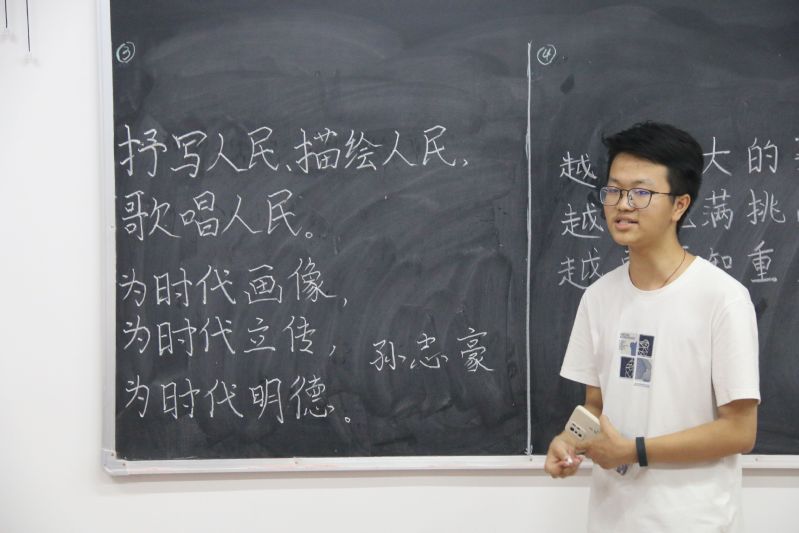 ③
抒写人民、描绘人民,
歌唱人民。
为时代画像,
为时代立传,
为时代明德。
孙忠豪
④
越 大的
越 满挑
越 知重